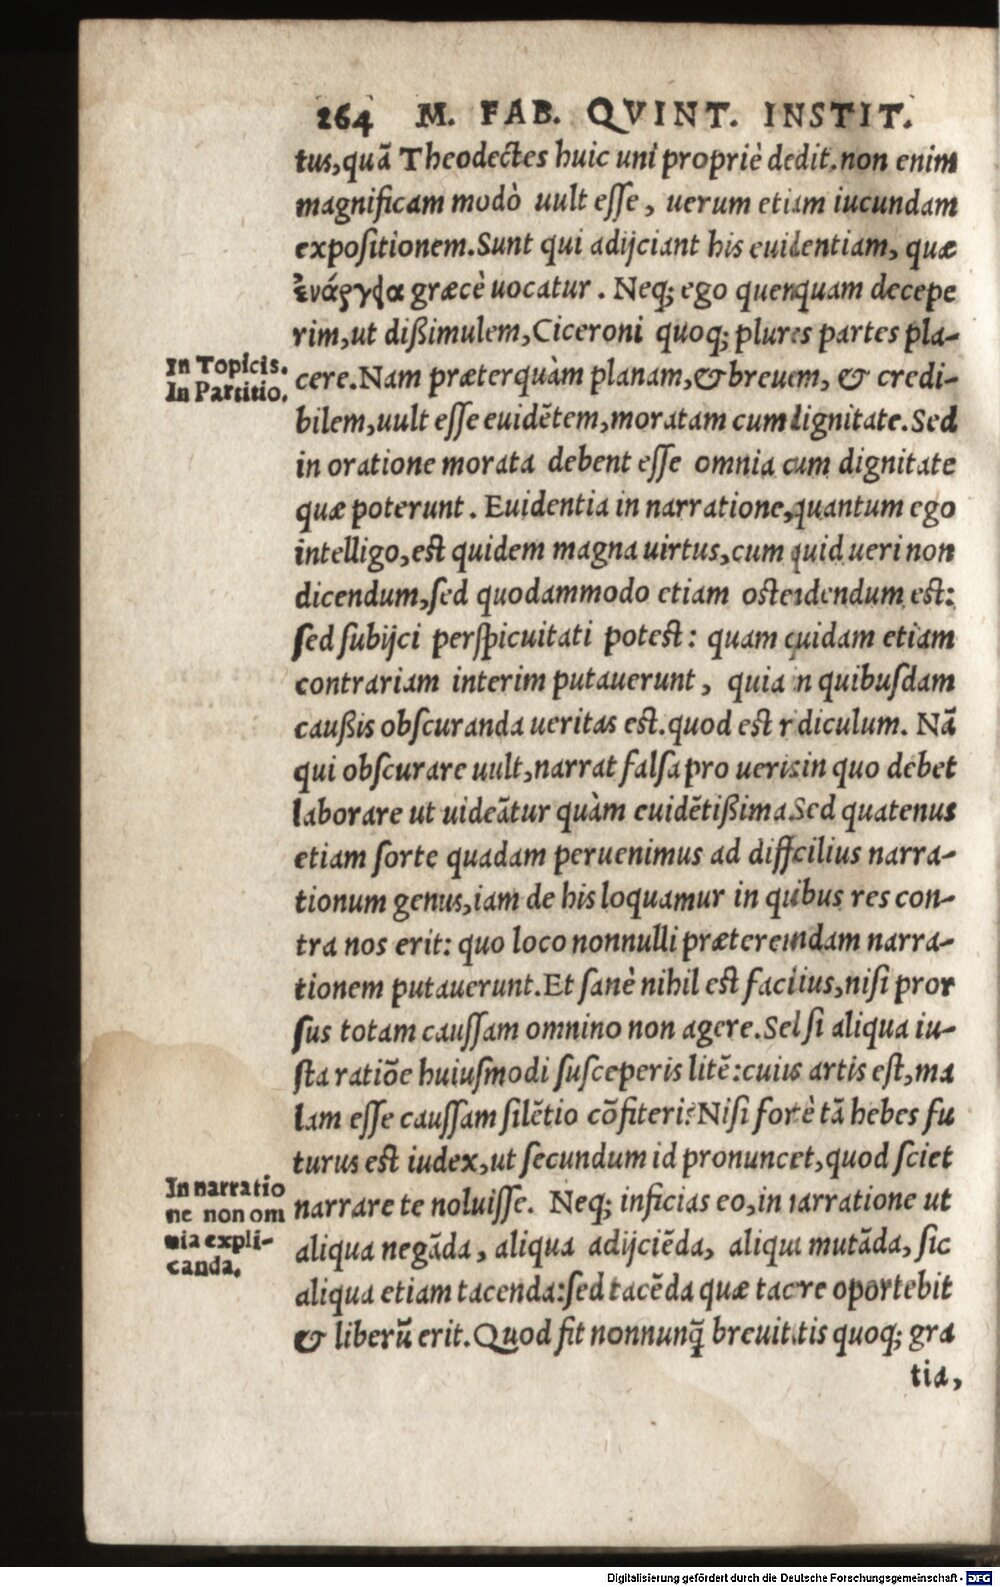 264 M. FAB. QVINT. INSTIT.
tus,quā Theodectes huic uni propriè dedit.non enim
magnificam modò uult eſſe, uerum etiam iucundam
expoſitionem.Sunt qui adijciant his euidentiam, quæ
ἐνάργεια græcè uocatur. Neq; ego quenquam decepe
rim,ut dißimulem,Ciceroni quoq; plures partes pla-
In Topicis.
In Partitio.
cere.Nam præterquàm planam,& breuem, & credi-
bilem,uult eſſe euidētem,moratam cum dignitate.Sed
in oratione morata debent eſſe omnia cum dignitate
quæ poterunt. Euidentia in narratione,quantum ego
intelligo,eſt quidem magna uirtus,cum quid ueri non
dicendum,ſed quodammodo etiam oſtendendum eſt:
ſed ſubijci perſpicuitati poteſt: quam quidam etiam
contrariam interim putauerunt, quia in quibuſdam
caußis obſcuranda ueritas eſt.quod eſt ridiculum. Nā
qui obſcurare uult,narrat falſa pro ueris:in quo debet
laborare ut uideātur quàm euidētißima.Sed quatenus
etiam ſorte quadam peruenimus ad difficilius narra-
tionum genus,iam de his loquamur in quibus res con-
tra nos erit: quo loco nonnulli prætereundam narra-
tionem putauerunt.Et ſanè nihil eſt facilius,niſi pror
ſus totam cauſſam omnino non agere.Sed ſi aliqua iu-
ſta ratiōe huiuſmodi ſuſceperis litē:cuius artis eſt,ma
lam eſſe cauſſam ſilētio cōfiteri?Niſi fortè tā hebes fu
turus eſt iudex,ut ſecundum id pronunciet,quod ſciet
In narratio
ne non om
nia expli-
canda.
narrare te noluiſſe. Neq; inficias eo,in narratione ut
aliqua negāda, aliqua adijciēda, aliqua mutāda, ſic
aliqua etiam tacenda:ſed tacēda quæ tacere oportebit
& liberū erit.Quod fit nonnunq̄ breuitatis quoq; gra
tia,
Digitalisierung gefördert durch die Deutsche Forschungsgemeinschaft - DFG